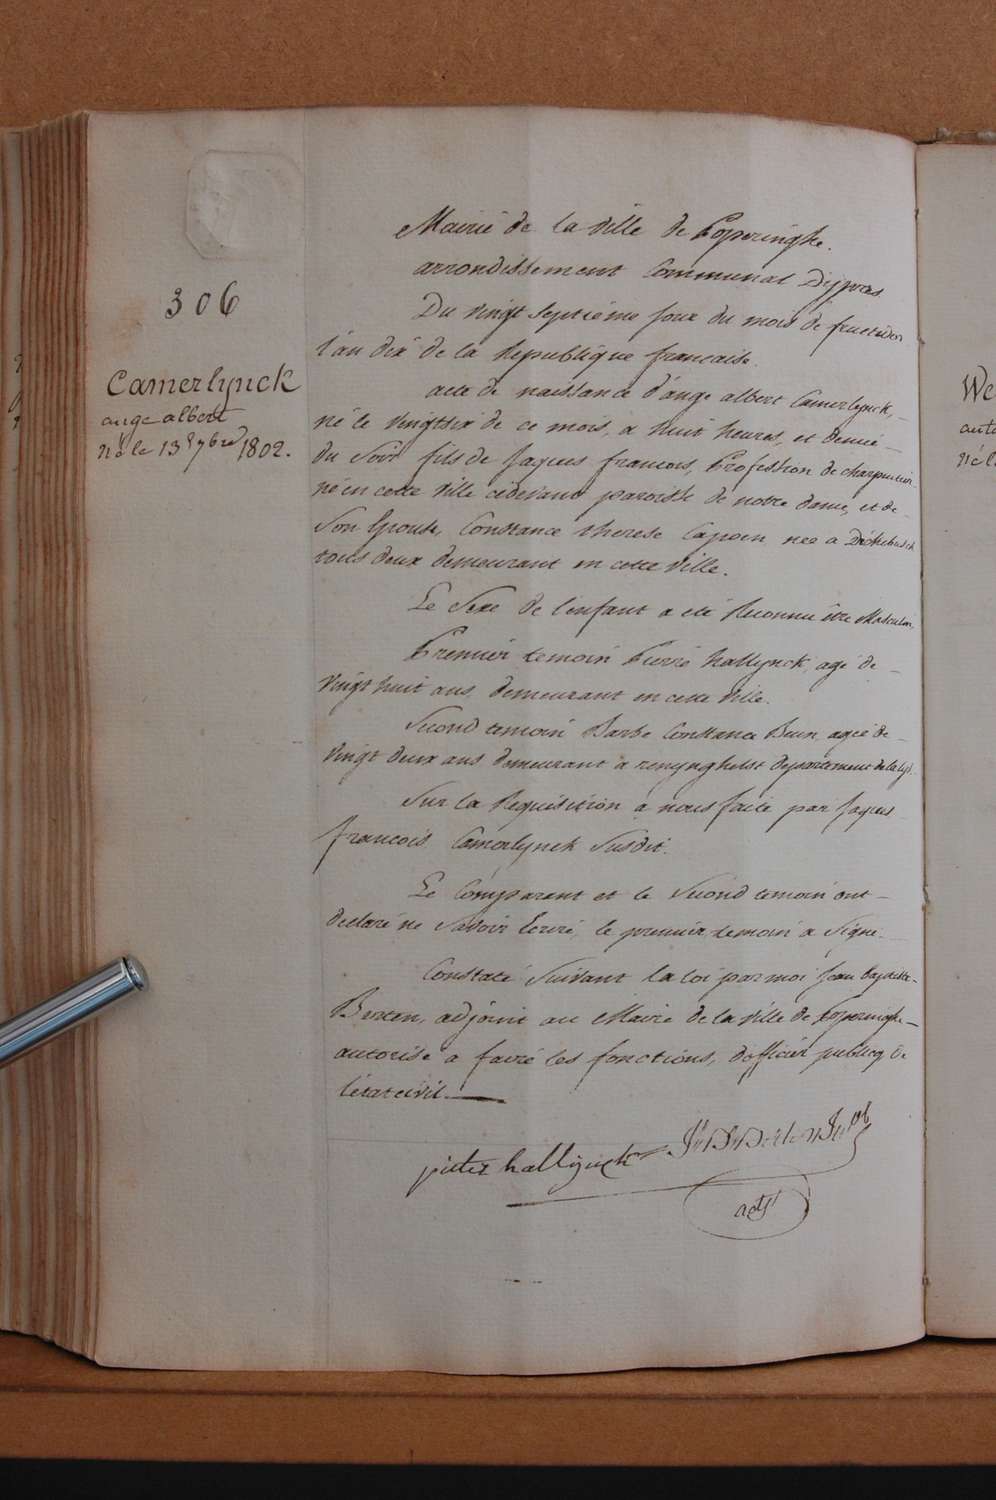 306
Camerlynck
ange albert
né le 13 7bre 1802.
Mairie de la ville de Poperinghe.
arrondissement Communal Dijpres
Du vingt septieme jour du mois de fructidor
l'an dix de la Republique francaise.
acte de naissance d'ange albert Camerlynck,
né le vingtsix de ce mois, a huit heures, et demie
du Soir fils de Jaques francois, Profession de charpentier
né en cette ville cidevant paroisse de notre dame, et de
Son Epouse, Constance therese Capoen nee a Dickebusch
tous deux demeurant en cette ville.
Le Sexe de l'enfant a eté Reconnu être Masculin,
Premier temoin Pierre hallynck, agé de
vingt huit ans, demeurant en cette ville.
Second temoin Barbe Constance Beun, agée de
vingt deux ans demeurant a renynghelst departement de la lys.
Sur la Requisition a nous faite par Jaques
francois Camerlynck Susdit.
Le Comparent et le Second temoin ont
declaré ne Savoir Ecrire, le premier temoin a Signé.
Constaté Suivant la loi par moi Jean baptiste
Berten, adjoint au Maire de la ville de Poperinghe
autorisé a faire les fonctions, d'officier publicq de
l'etat civil.
pieter hallijnck
Jn Bte Berten
adjt
We